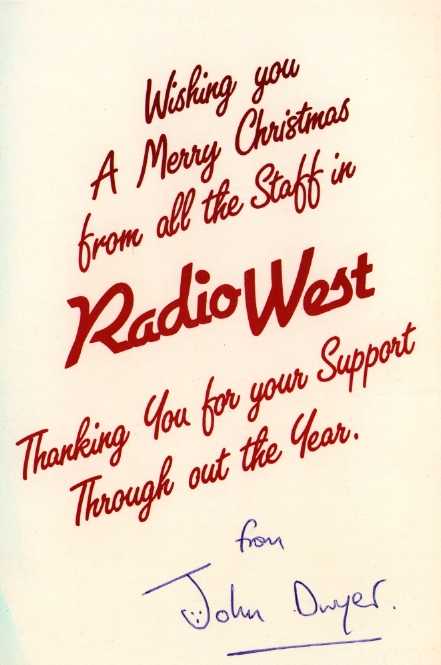 Wishing you
A Merry Christmas
from all the Staff in
Radio West
Thanking You for your Support
Through out the Year.
from
John Dwyer.